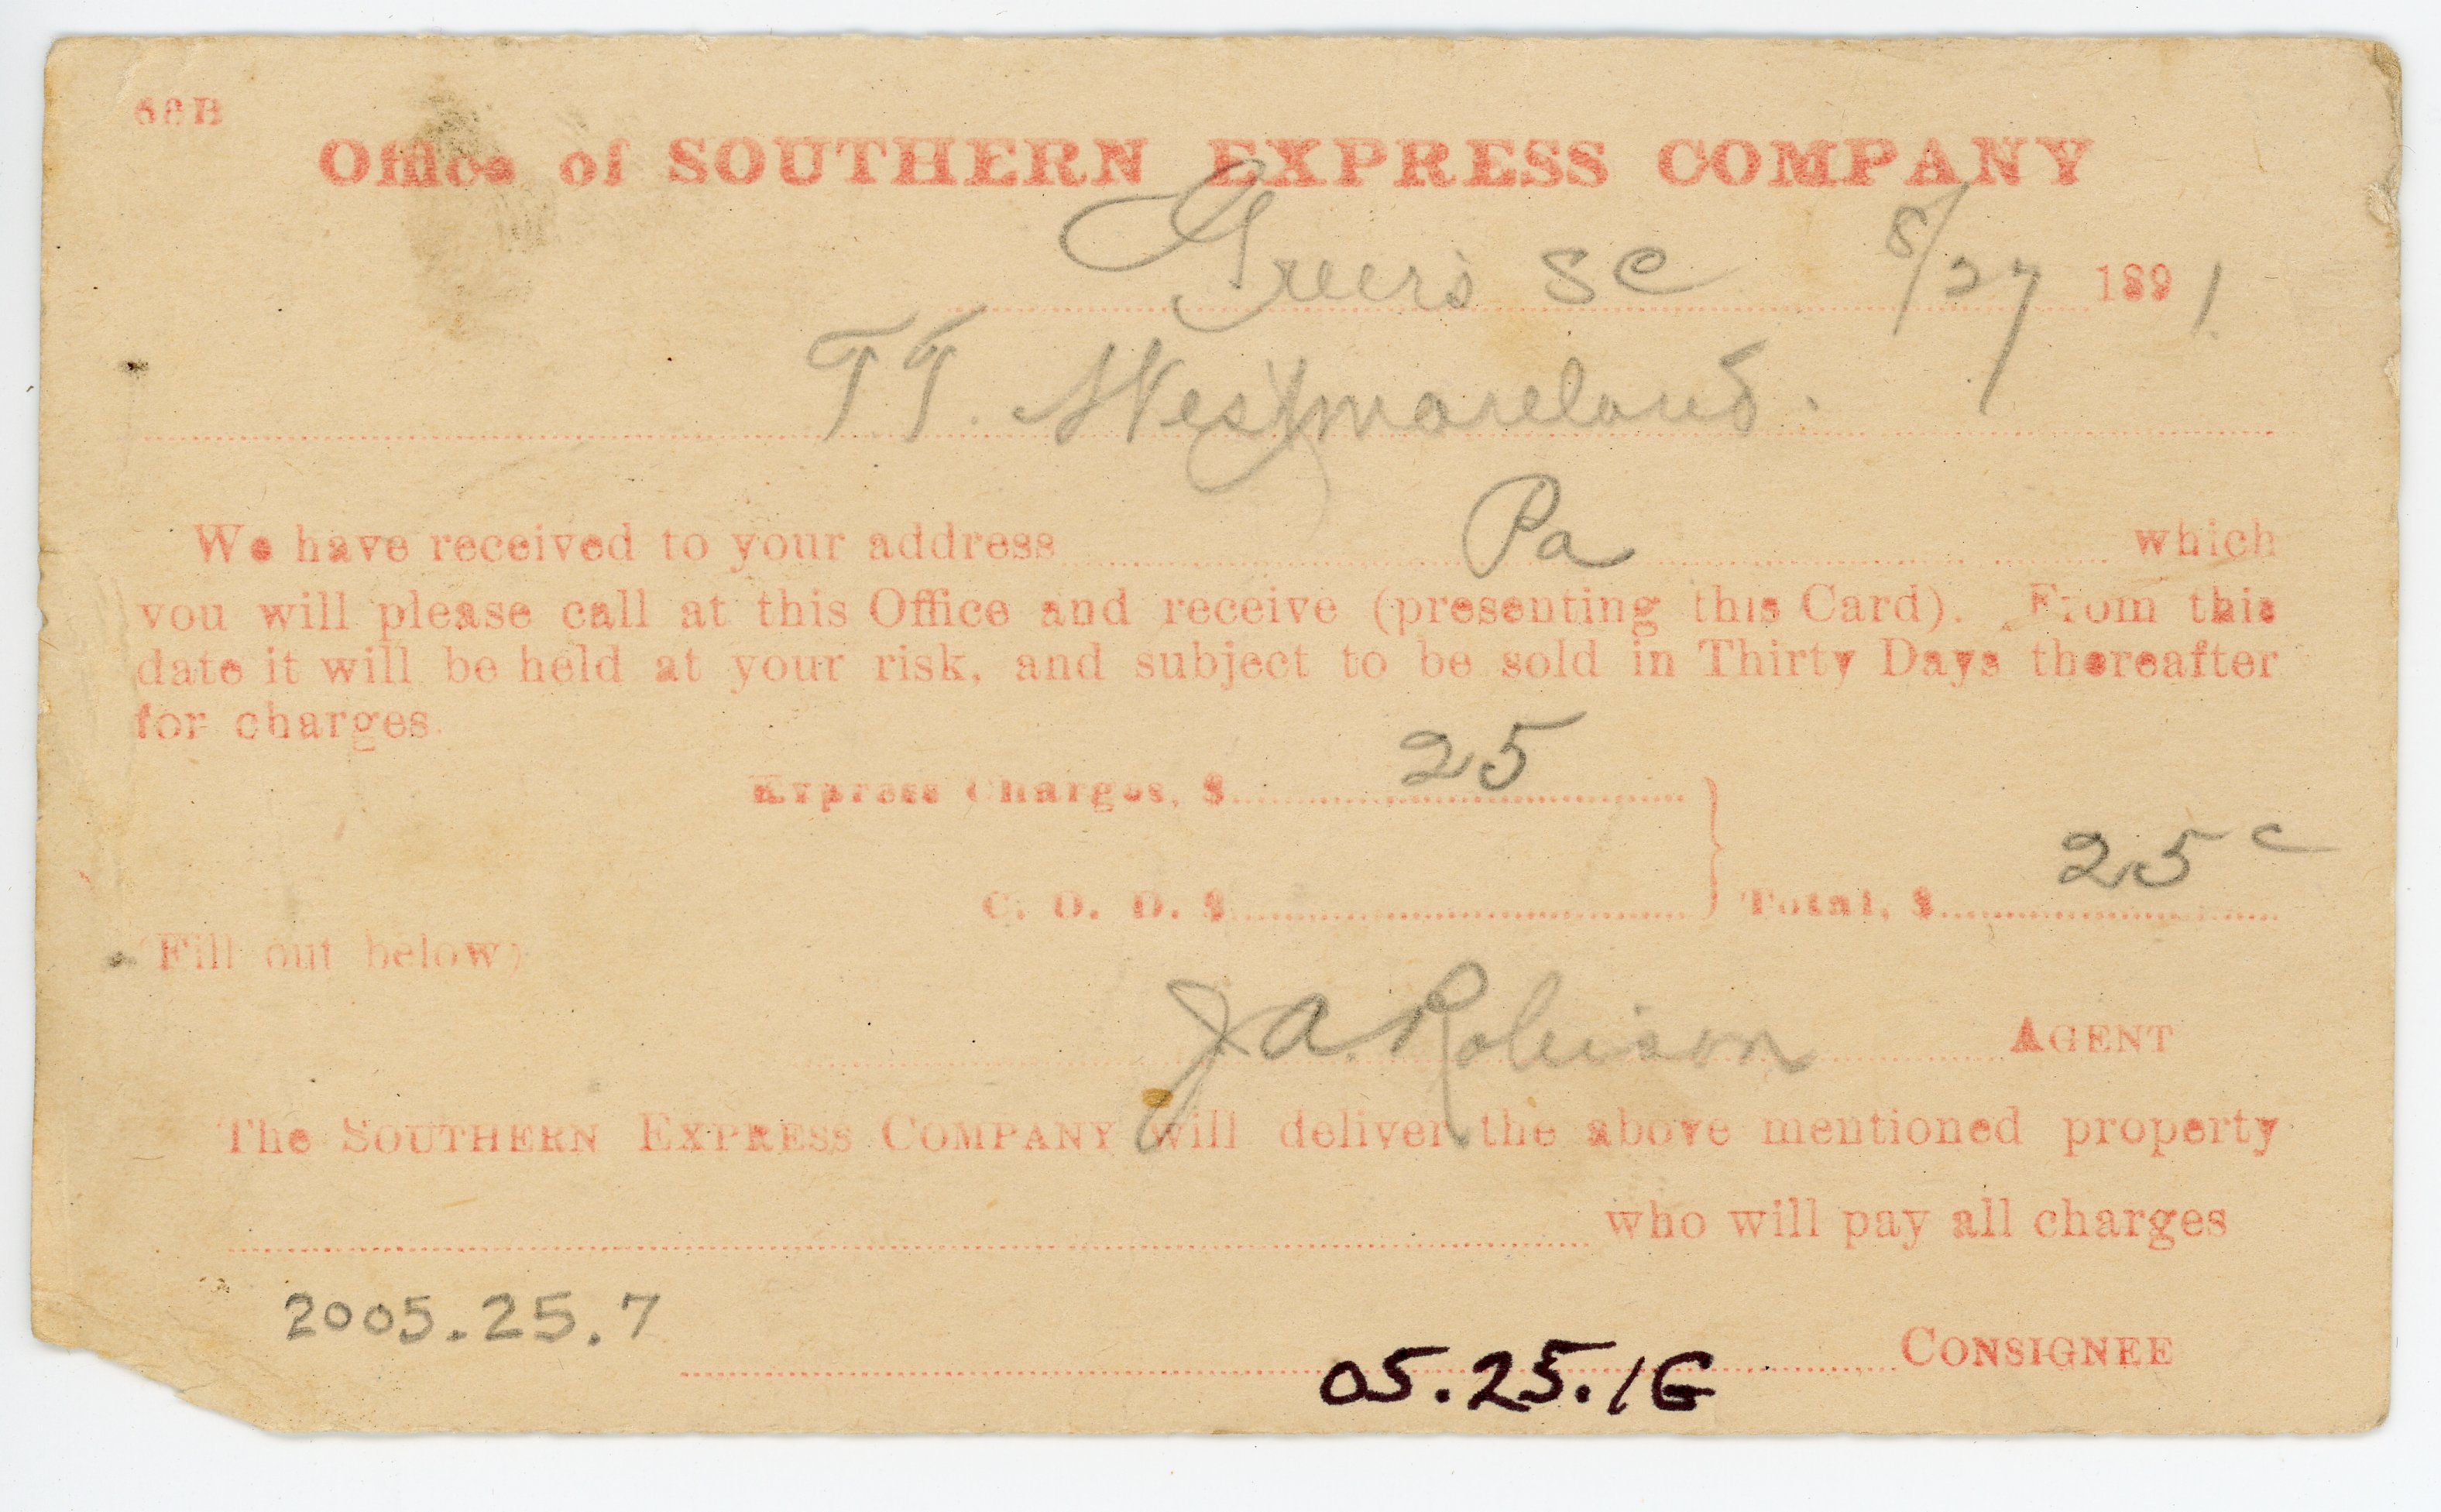 68B
Office of SOUTHERN EXPRESS COMPANY
Greers SC 8/27 1891.
T.T. Westmoreland.
We have received to your address Pa which
you will please call at this Office and receive (presenting this Card). From this
date it will be held at your risk, and subject to be sold in Thirty Days thereafter
for charges.
Express Charges, $ 25
C. O. D. $ } Total, $ 25c
(Fill out below)
J.A. Robinson AGENT
The SOUTHERN EXPRESS COMPANY will deliver the above mentioned property
who will pay all charges
2005.25.7
05.25.1G CONSIGNEE